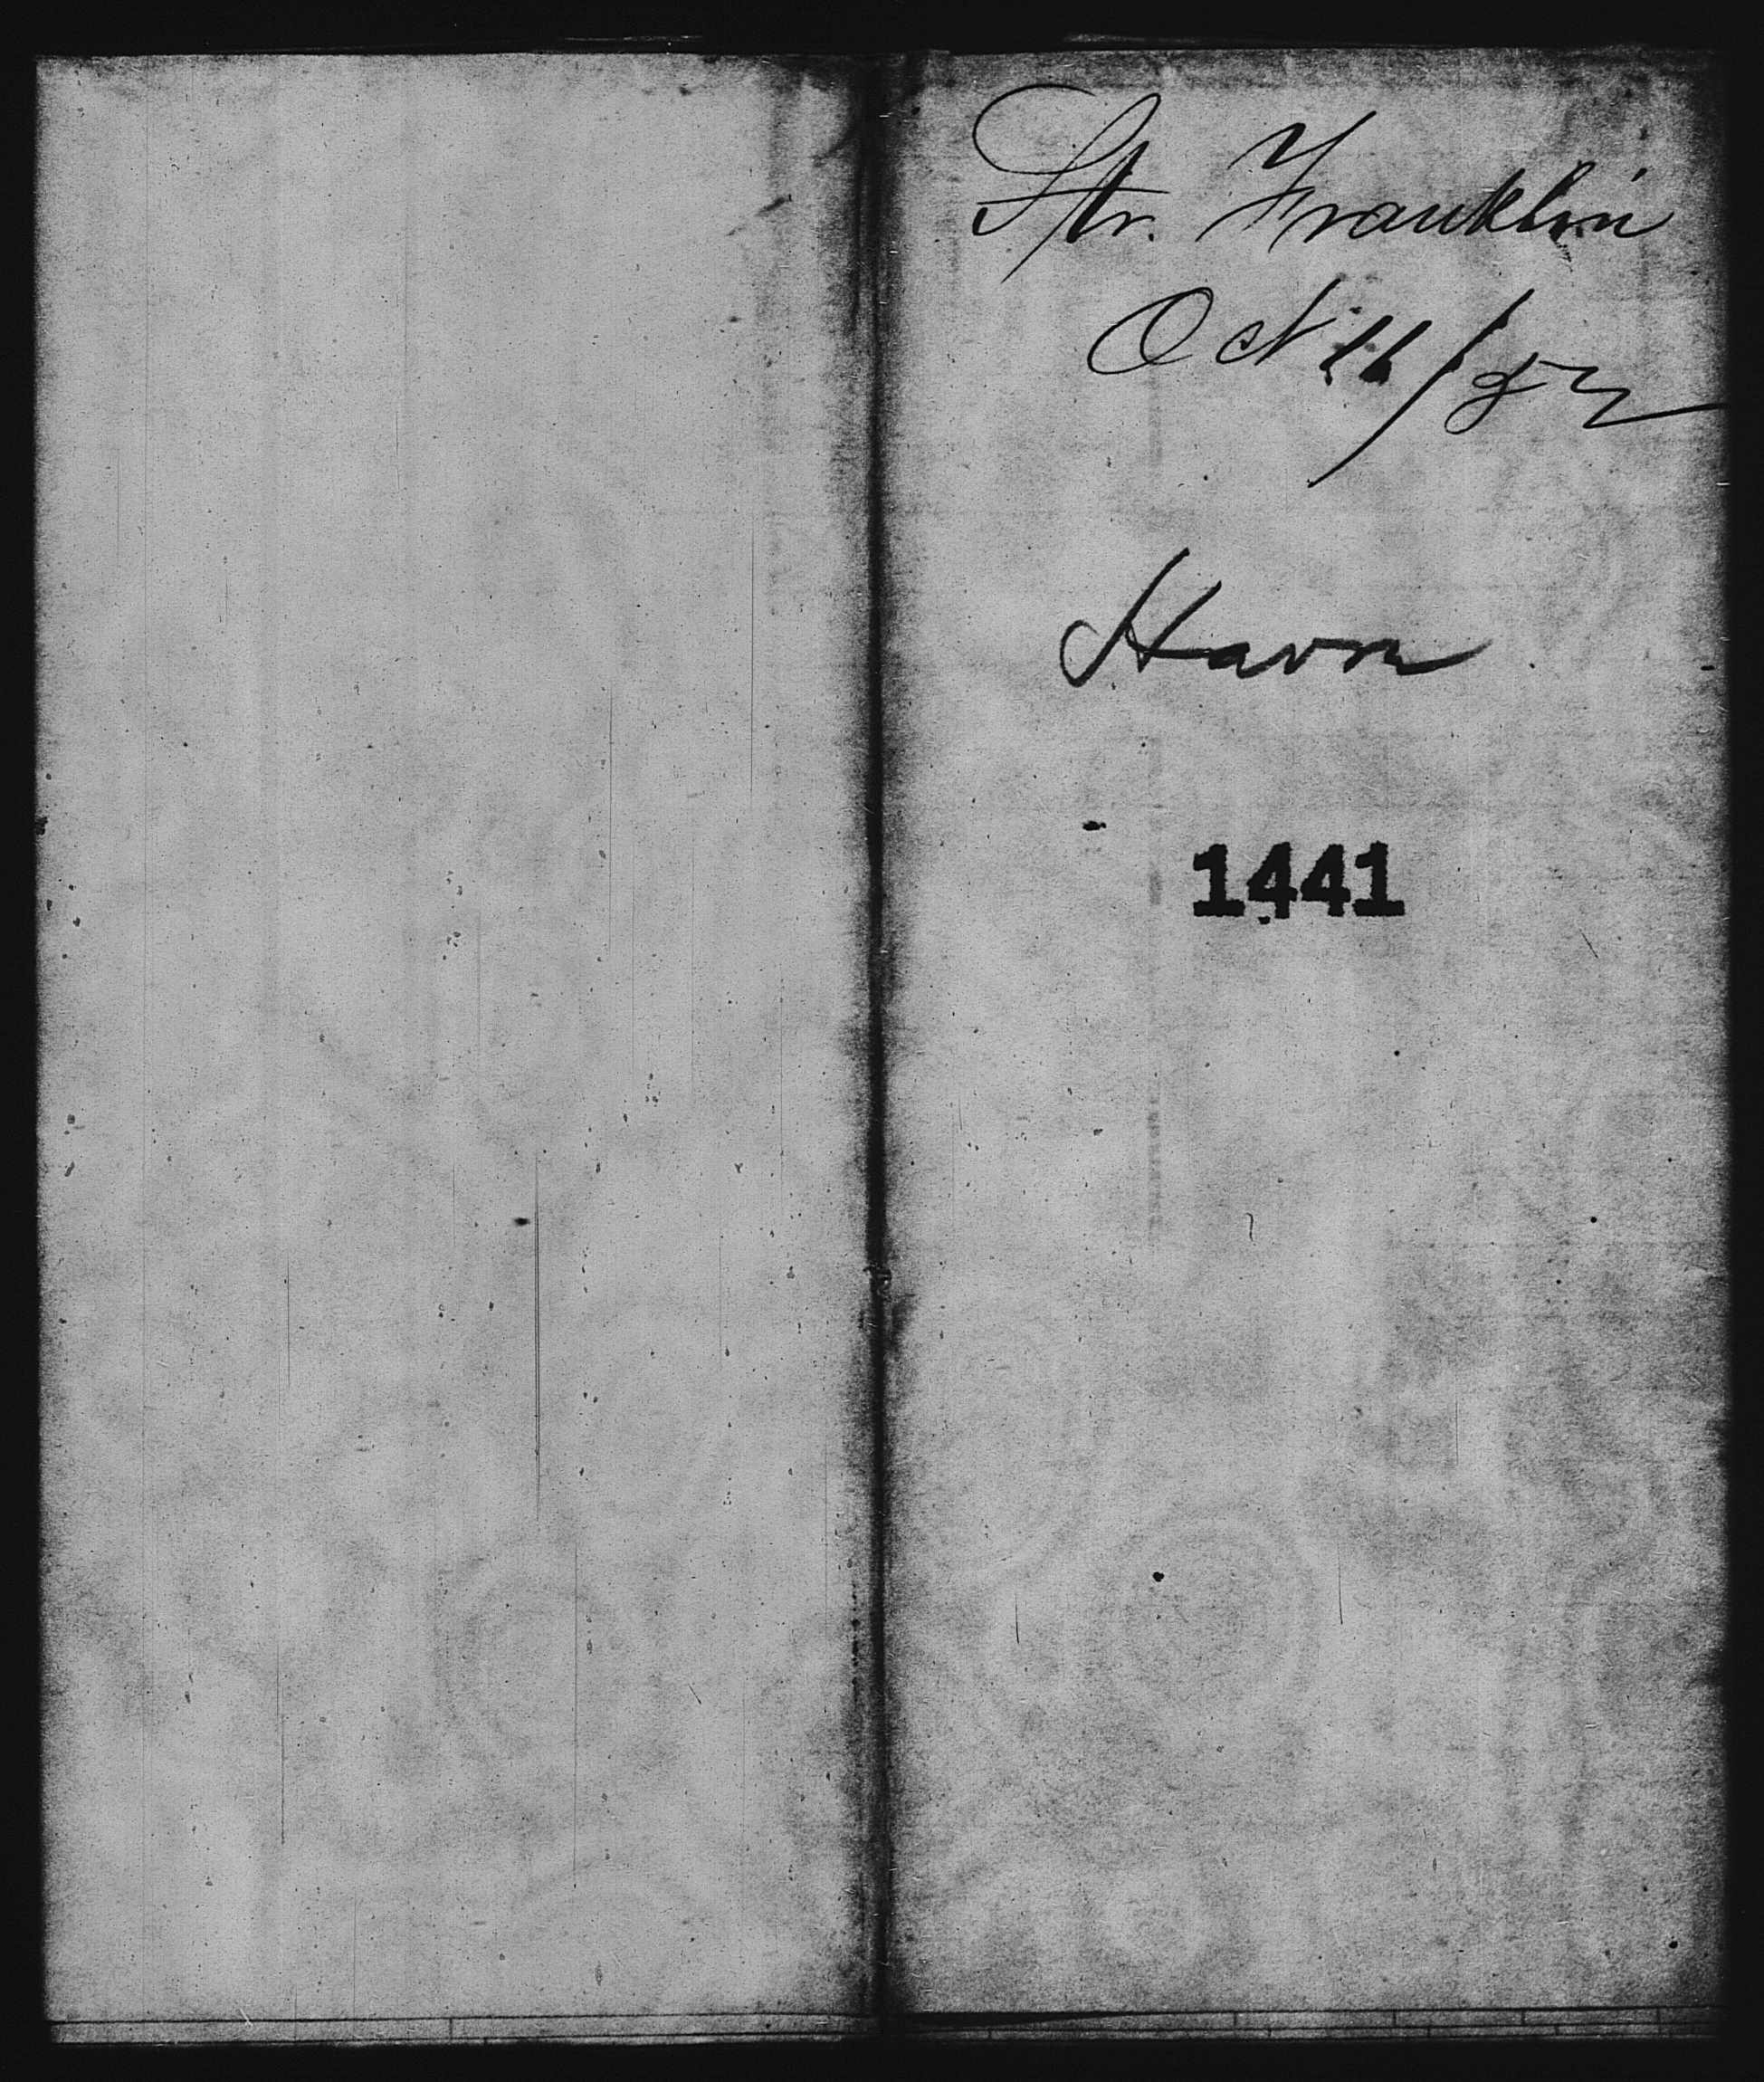 Str. Franklin
Oct 11/52
Havre
1441